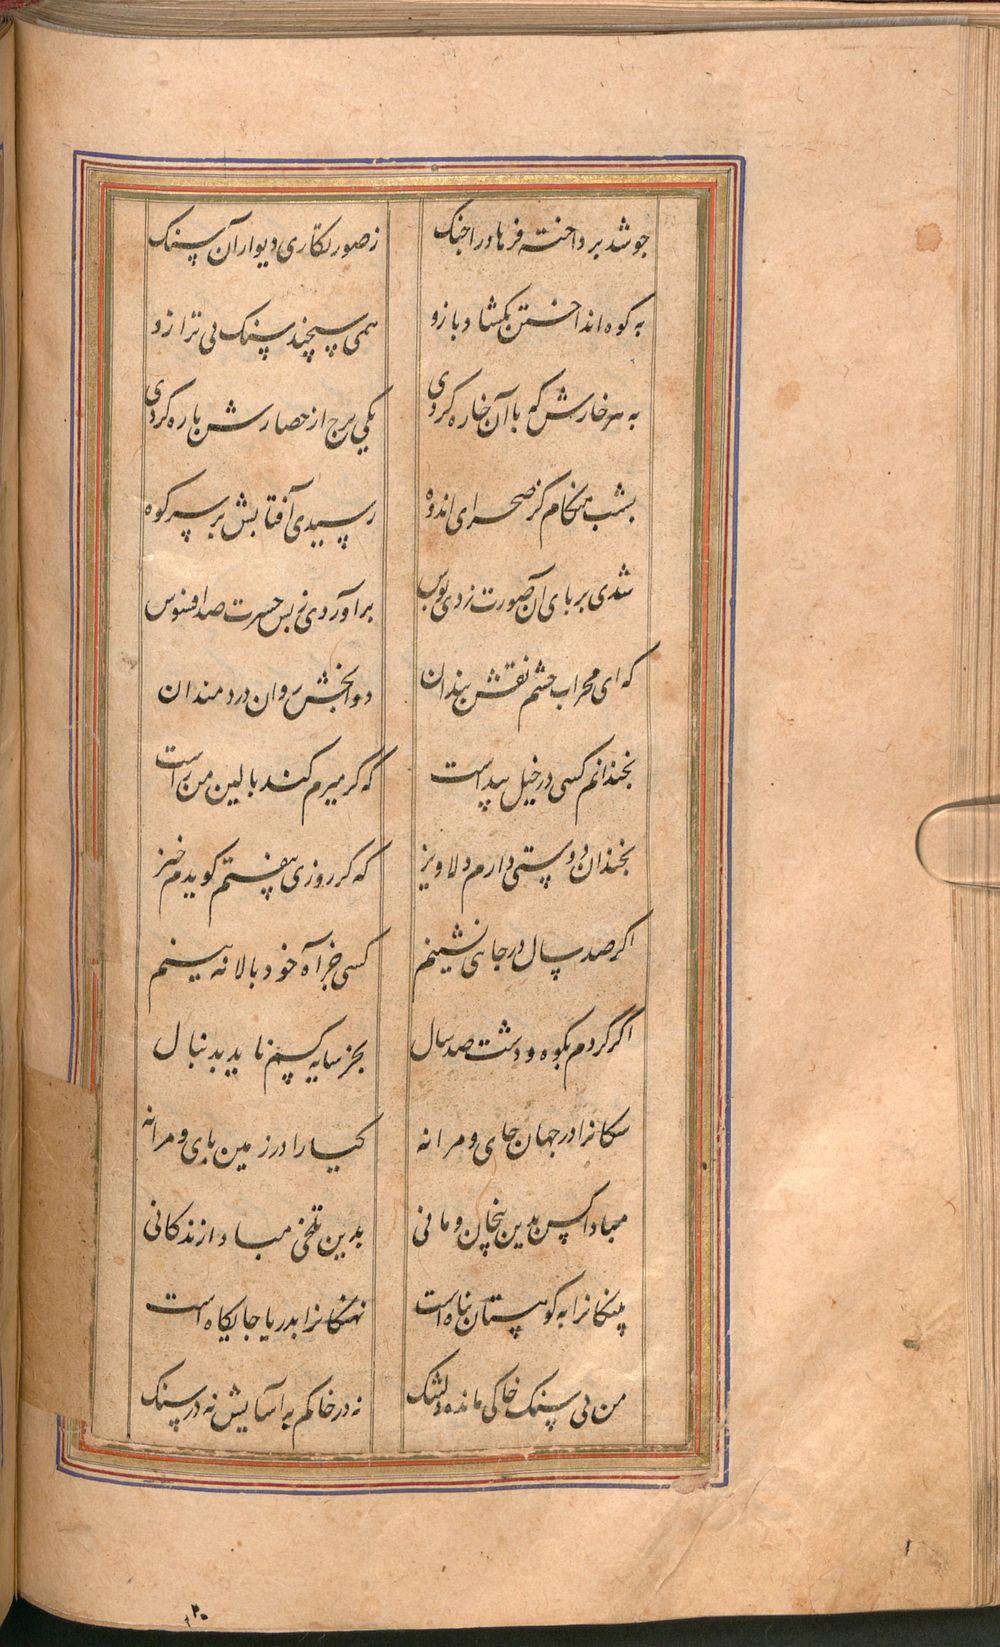 چو شد پرداخته فرهاد را جنک ز صورتکاری دیوار آن سنک
به کوه انداختن بکشاد بازو همی سنجید سنک بی ترازو
به هر خارش که با آن خاره کردی یکی برج از حصارش پاره کردی
بشب هنکام کز صحرای اندوه رسیدی آفتابش بر سر کوه
شدی بر پای آن صورت زدی بوس برآوردی ز بس حسرت صد افسوس
که ای محراب چشم نقش بندان دوابخش روان دردمندان
بخندانم کسی در خیل پیداست که کر میرم کند بالین من راست
بخندان دوستی دارم دلاویز که کر روزی بیفتم کویدم خیز
اکر صد سال در جایی نشینم کسی جز آه خود بالا نه بینم
اکر کردم بکوه و دشت صد سال بجز سایه کسم ناید بدنبال
سکانرا در جهان جای و مرا نه کیا را در زمین پای و مرا نه
مبادا کس بدین بیخان و مانی بدین تلخی مباد از زندکانی
پلنکانرا به کوهستان پناه است نهنکانرا بدریا جایکاه است
من بی سنک خاکی مانده دلتنک نه در خاکم به آسایش نه در سنک